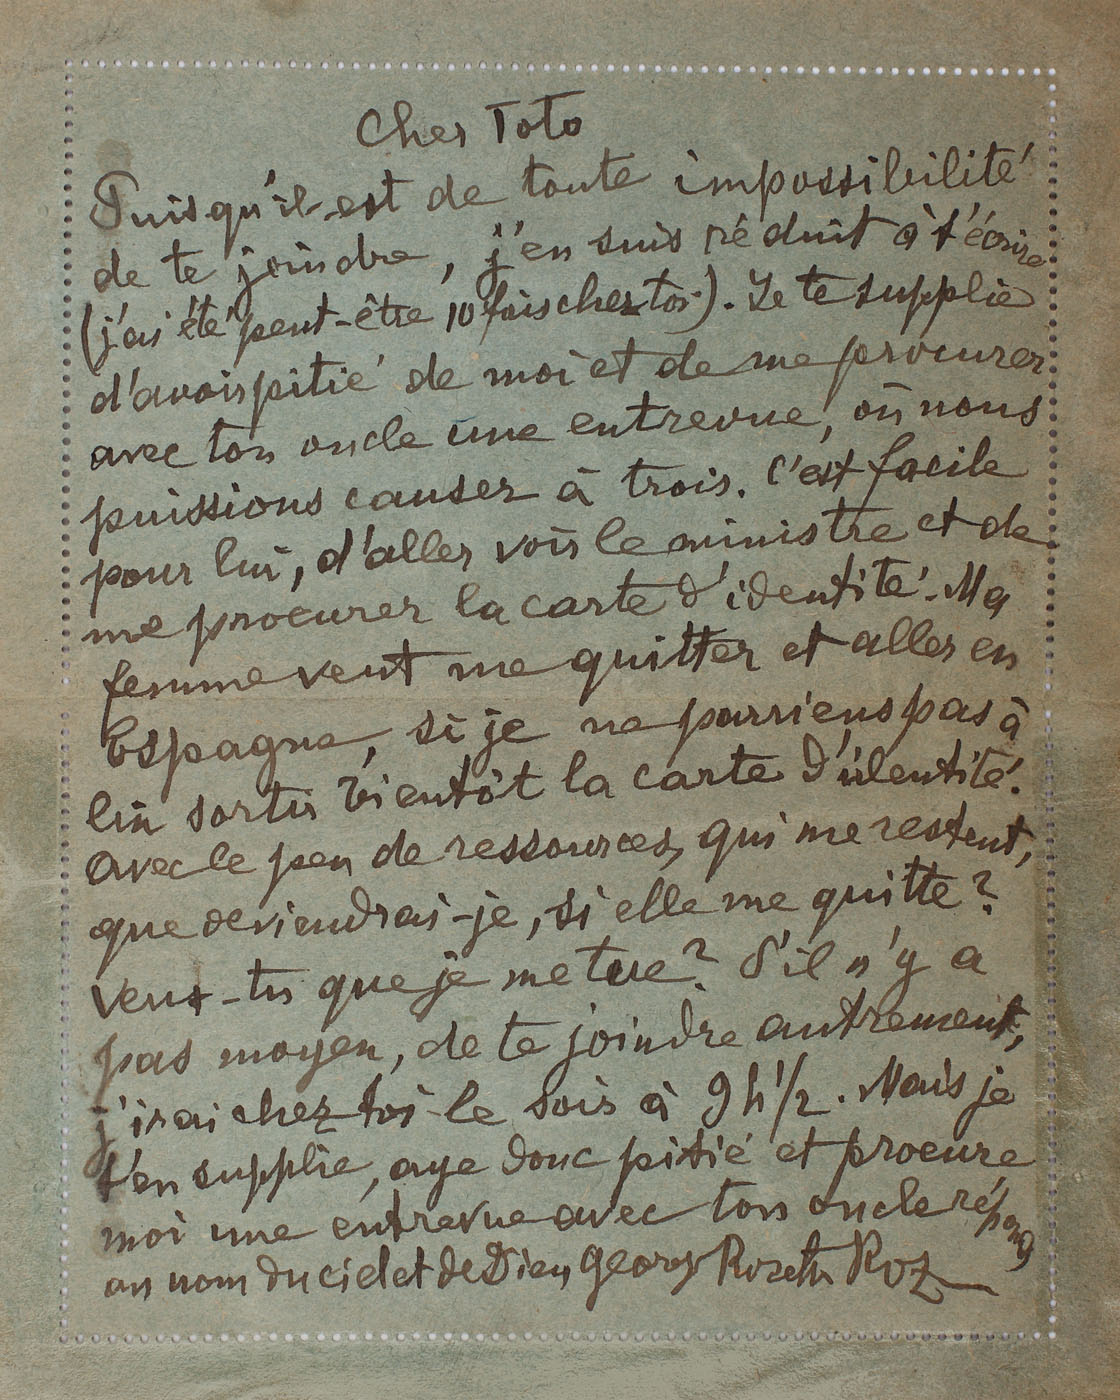 Cher Toto
Puisqu'il est de toute impossibilité
de te joindre, j'en suis réduit à t'écrire
(j'ai été peut-être 10 fois chez toi). Je te supplie
d'avoir pitié de moi et de me procurer
avec ton oncle une entrevue, où nous
puissions causer à trois. C'est facile
pour lui, d'aller voir le ministre et de
me procurer la carte d'identité. Ma
femme veut me quitter et aller en
Espagne, si je ne parviens pas à
lui sortir bientôt la carte d'identité.
Avec le peu de ressources, qui me restent,
que deviendrai-je, si elle me quitte?
Veux-tu que je me tue? S'il n'y a
pas moyen, de te joindre autrement,
j'irai chez toi le soir à 9 h 1/2. Mais je
t'en supplie, aye donc pitié et procure
moi une entrevue avec ton oncle répons
au nom du ciel et de Dieu Georg Roz